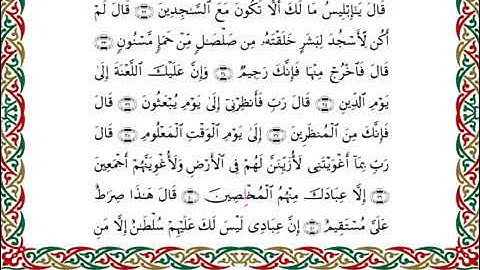 قَالَ يَٰٓإِبْلِيسُ مَا لَكَ أَلَّا تَكُونَ مَعَ ٱلسَّٰجِدِينَ قَالَ لَمْ
أَكُن لِّأَسْجُدَ لِبَشَرٍ خَلَقْتَهُۥ مِن صَلْصَٰلٍ مِّنْ حَمَإٍ مَّسْنُونٍ
قَالَ فَٱخْرُجْ مِنْهَا فَإِنَّكَ رَجِيمٌ وَإِنَّ عَلَيْكَ ٱللَّعْنَةَ إِلَىٰ
يَوْمِ ٱلدِّينِ قَالَ رَبِّ فَأَنظِرْنِىٓ إِلَىٰ يَوْمِ يُبْعَثُونَ قَالَ
فَإِنَّكَ مِنَ ٱلْمُنظَرِينَ إِلَىٰ يَوْمِ ٱلْوَقْتِ ٱلْمَعْلُومِ قَالَ
رَبِّ بِمَآ أَغْوَيْتَنِى لَأُزَيِّنَنَّ لَهُمْ فِى ٱلْأَرْضِ وَلَأُغْوِيَنَّهُمْ أَجْمَعِينَ
إِلَّا عِبَادَكَ مِنْهُمُ ٱلْمُخْلَصِينَ قَالَ هَٰذَا صِرَٰطٌ
عَلَىَّ مُسْتَقِيمٌ إِنَّ عِبَادِى لَيْسَ لَكَ عَلَيْهِمْ سُلْطَٰنٌ إِلَّا مَنِ